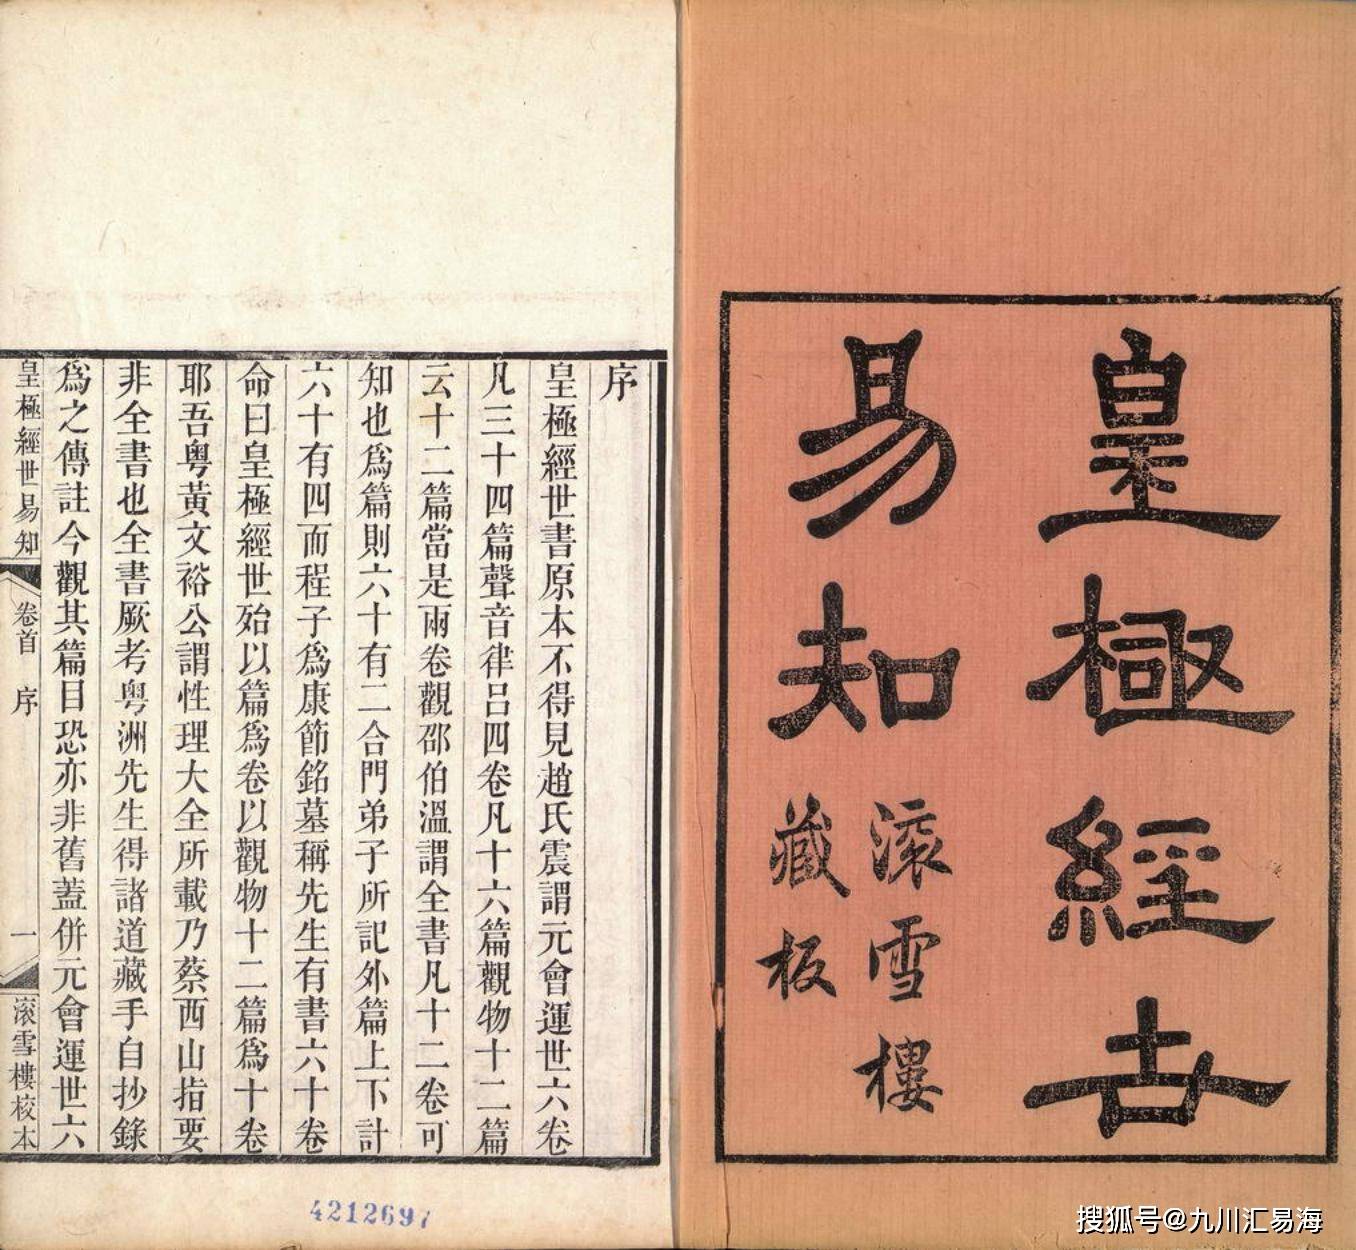 皇極經世
易知
滚雪樓
藏板
序
皇極經世書原本不得見趙氏震謂元會運世六卷
凡三十四篇聲音律呂四卷凡十六篇觀物十二篇
云十二篇當是兩卷觀邵伯溫謂全書凡十二卷可
知也爲篇則六十有二合門弟子所記外篇上下計
六十有四而程子爲康節銘墓稱先生有書六十卷
命曰皇極經世殆以篇爲卷以觀物十二篇爲十卷
耶吾粵黃文裕公謂性理大全所載乃蔡西山指要
非全書也全書厥考粵洲先生得諸道藏手自抄錄
爲之傳註今觀其篇目恐亦非舊蓋併元會運世六
皇極經世易知 卷首 序 一 滚雪樓校本
4212697
搜狐号@九川汇易海